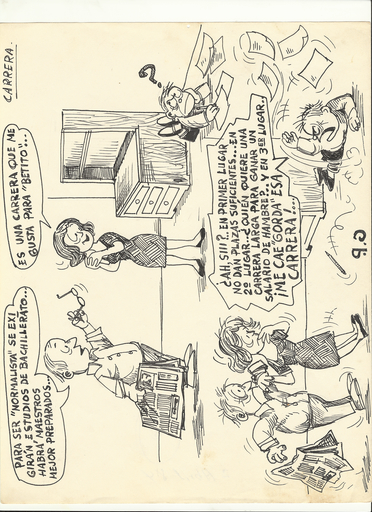 CARRERA.
PARA SER "NORMALISTA" SE EXI
GIRAN ESTUDIOS DE BACHILLERATO...
HABRA MAESTROS
MEJOR PREPARADOS...
ES UNA CARRERA QUE ME
GUSTA PARA "BETITO"!...
?
¿AH, SI!?.. EN PRIMER LUGAR
NO DAN PLAZAS SUFICIENTES... EN
2º LUGAR..¿QUIEN QUIERE UNA
CARRERA LARGA PARA GANAR UN
SALARIO DE HAMBRE?..Y EN 3ER LUGAR..
¡ME CAE "GORDA" ESA
CARRERA!...